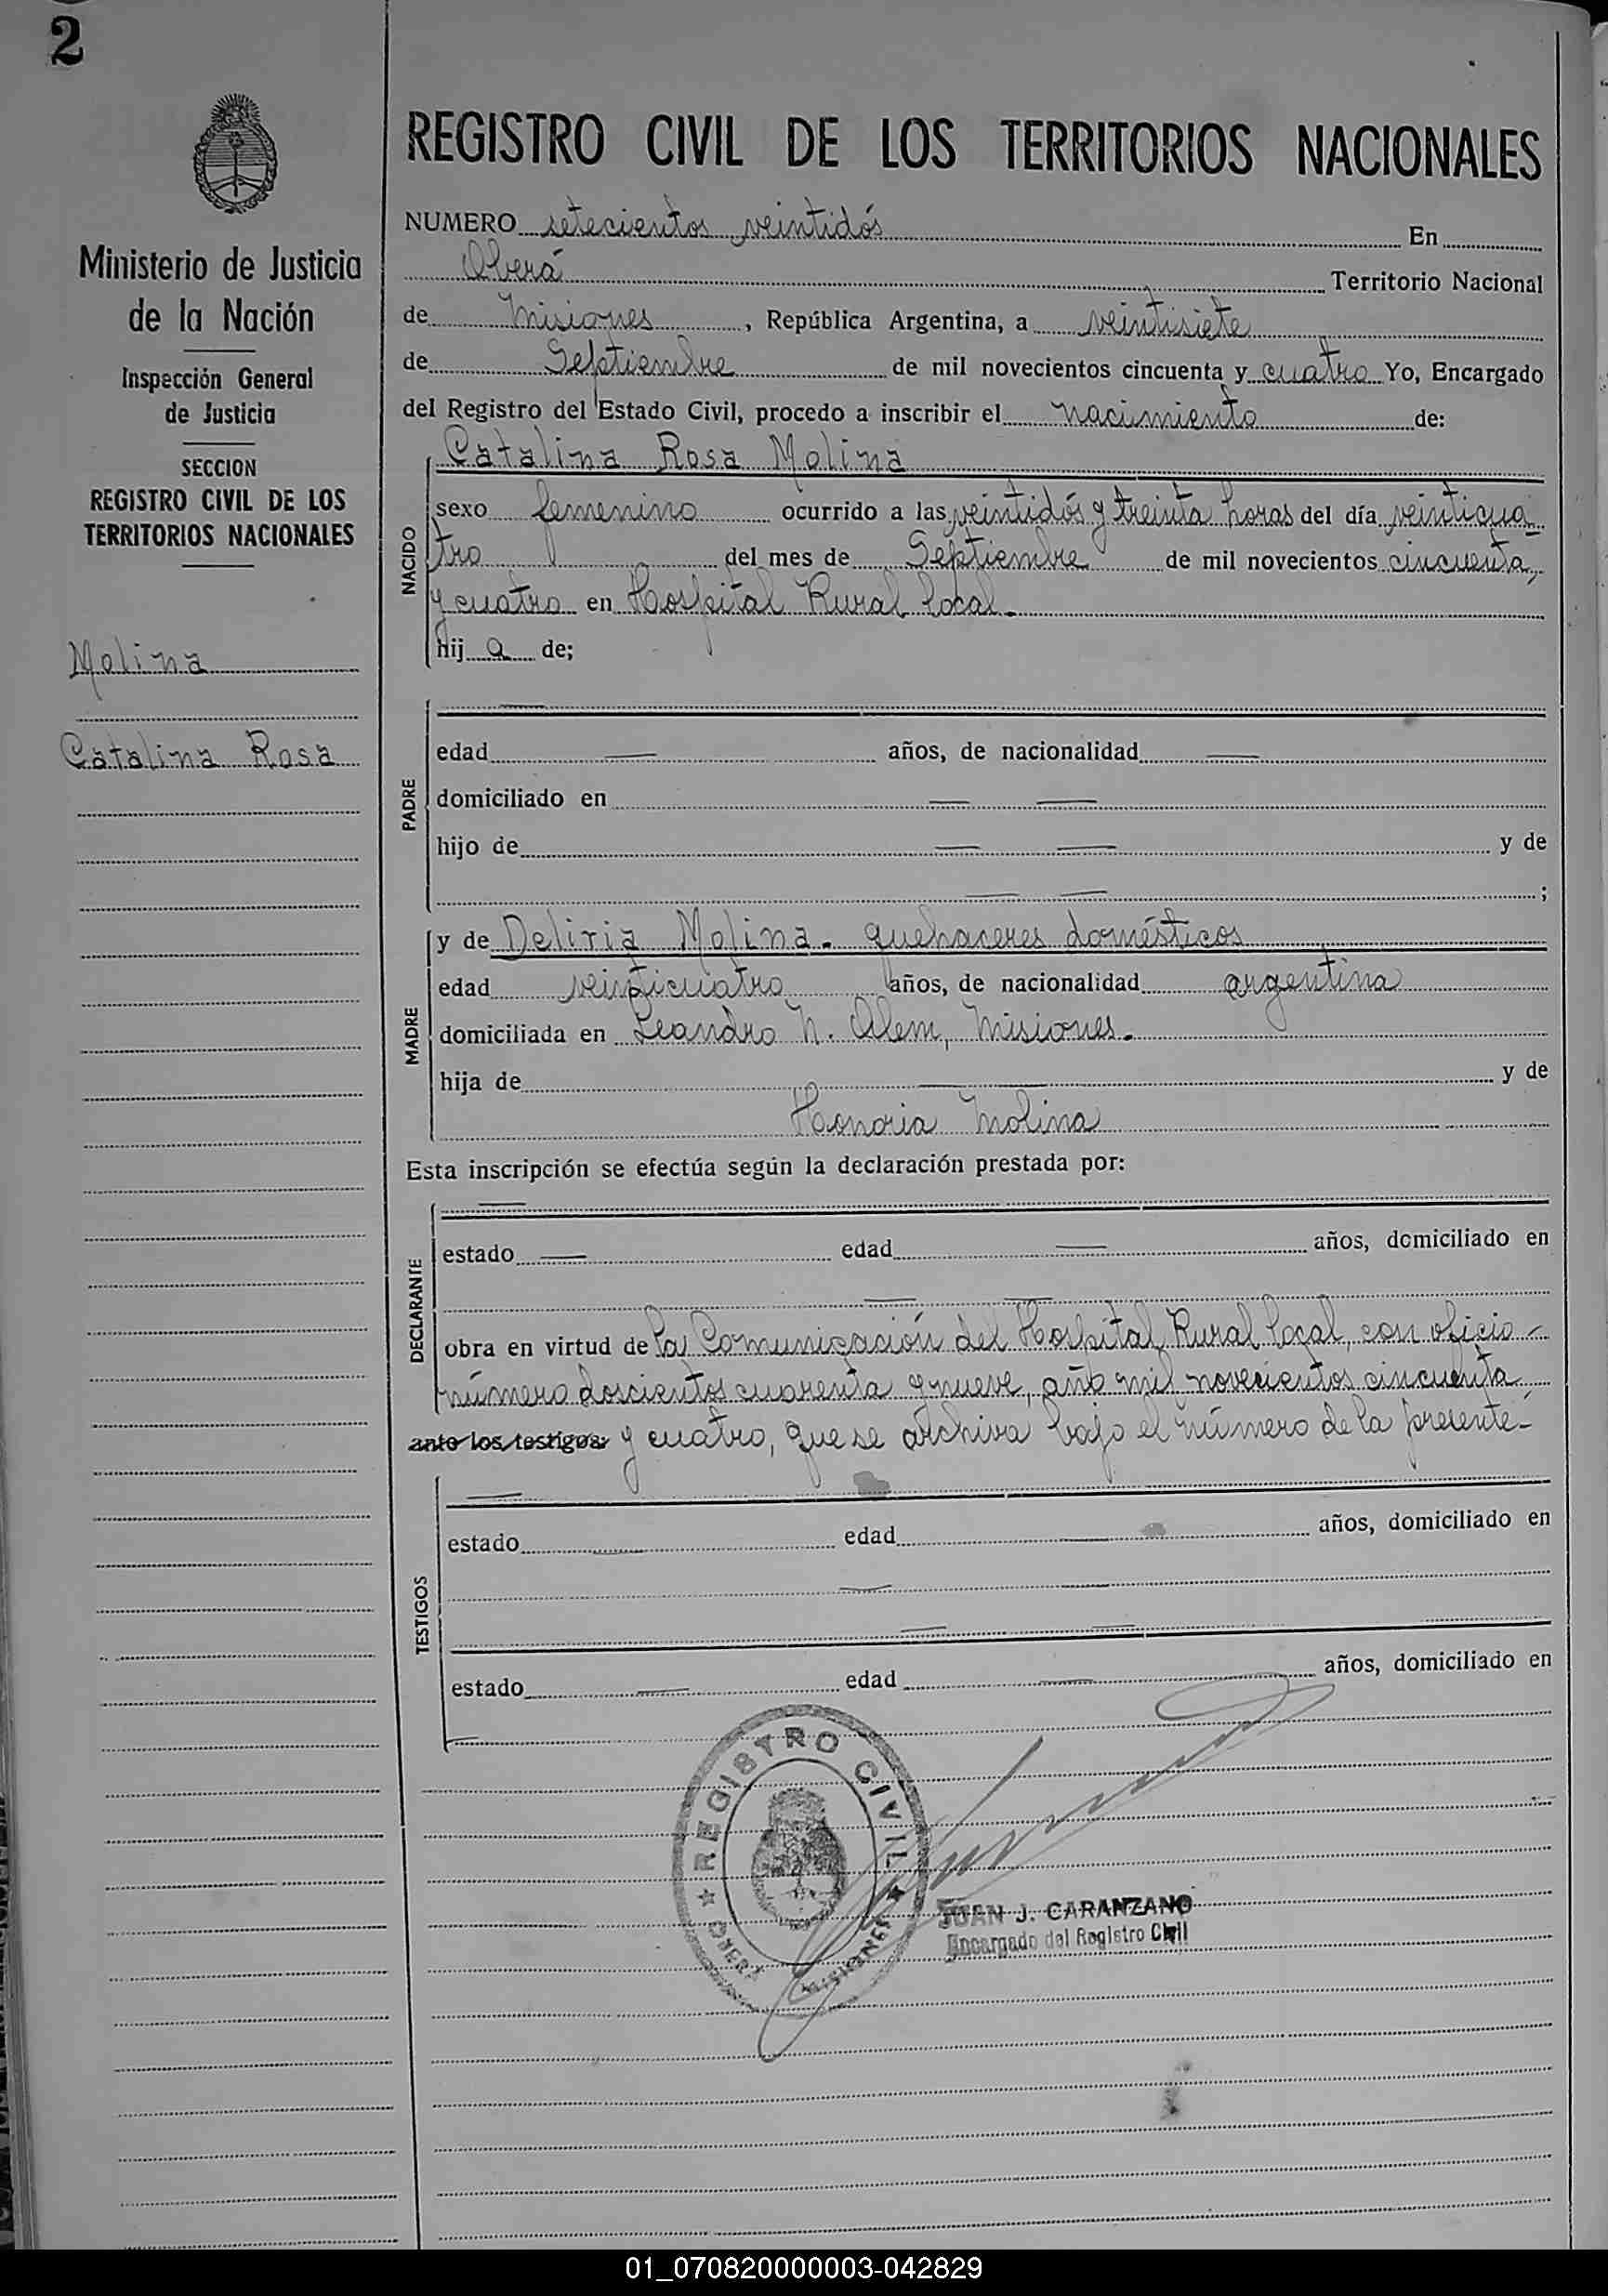 2
Ministerio de Justicia
de la Nación
Inspección General
de Justicia
SECCION
REGISTRO CIVIL DE LOS
TERRITORIOS NACIONALES
Molina
Catalina Rosa
REGISTRO CIVIL DE LOS TERRITORIOS NACIONALES
NUMERO setecientos veintidós En
Oberá Territorio Nacional
de Misiones, República Argentina, a veintisiete
de Septiembre de mil novecientos cincuenta y cuatro Yo, Encargado
del Registro del Estado Civil, procedo a inscribir el nacimiento de:
NACIDO
Catalina Rosa Molina
sexo femenino ocurrido a las veintidós y treinta horas del día veinticua
tro del mes de Septiembre de mil novecientos cincuenta
y cuatro en Hospital Rural local.
hij a de;
PADRE
edad — años, de nacionalidad —
domiciliado en — —
hijo de — — y de
— — ;
MADRE
y de Deliria Molina. quehaceres domésticos
edad veinticuatro años, de nacionalidad argentina
domiciliada en Leandro N. Alem, Misiones.
hija de — y de
Honoria Molina
Esta inscripción se efectúa según la declaración prestada por:
DECLARANTE
—
estado — edad — años, domiciliado en
— —
obra en virtud de la Comunicación del Hospital Rural local, con oficio
número doscientos cuarenta y nueve, año mil novecientos cincuenta
ante los testigos: y cuatro, que se archiva bajo el número de la presente-
TESTIGOS
—
estado — edad — años, domiciliado en
— —
— —
estado — edad — años, domiciliado en
—
REGISTRO CIVIL
★ OBERA MISIONES ★
JUAN J. CARANZANO
Encargado del Registro Civil
01_070820000003-042829